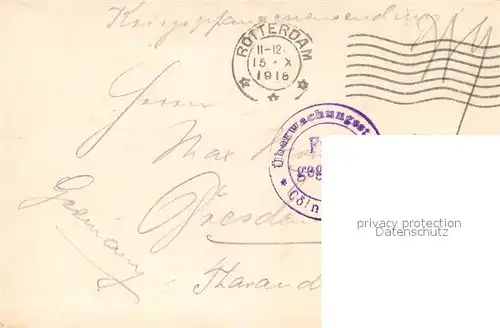 Kriegsgefangenensendung
ROTTERDAM
11-12.
15 · X
1918
Herrn
Überwachungsst
F
geg
Cöln
Max
Dresden
Germany
Tharand
privacy protection
Datenschutz